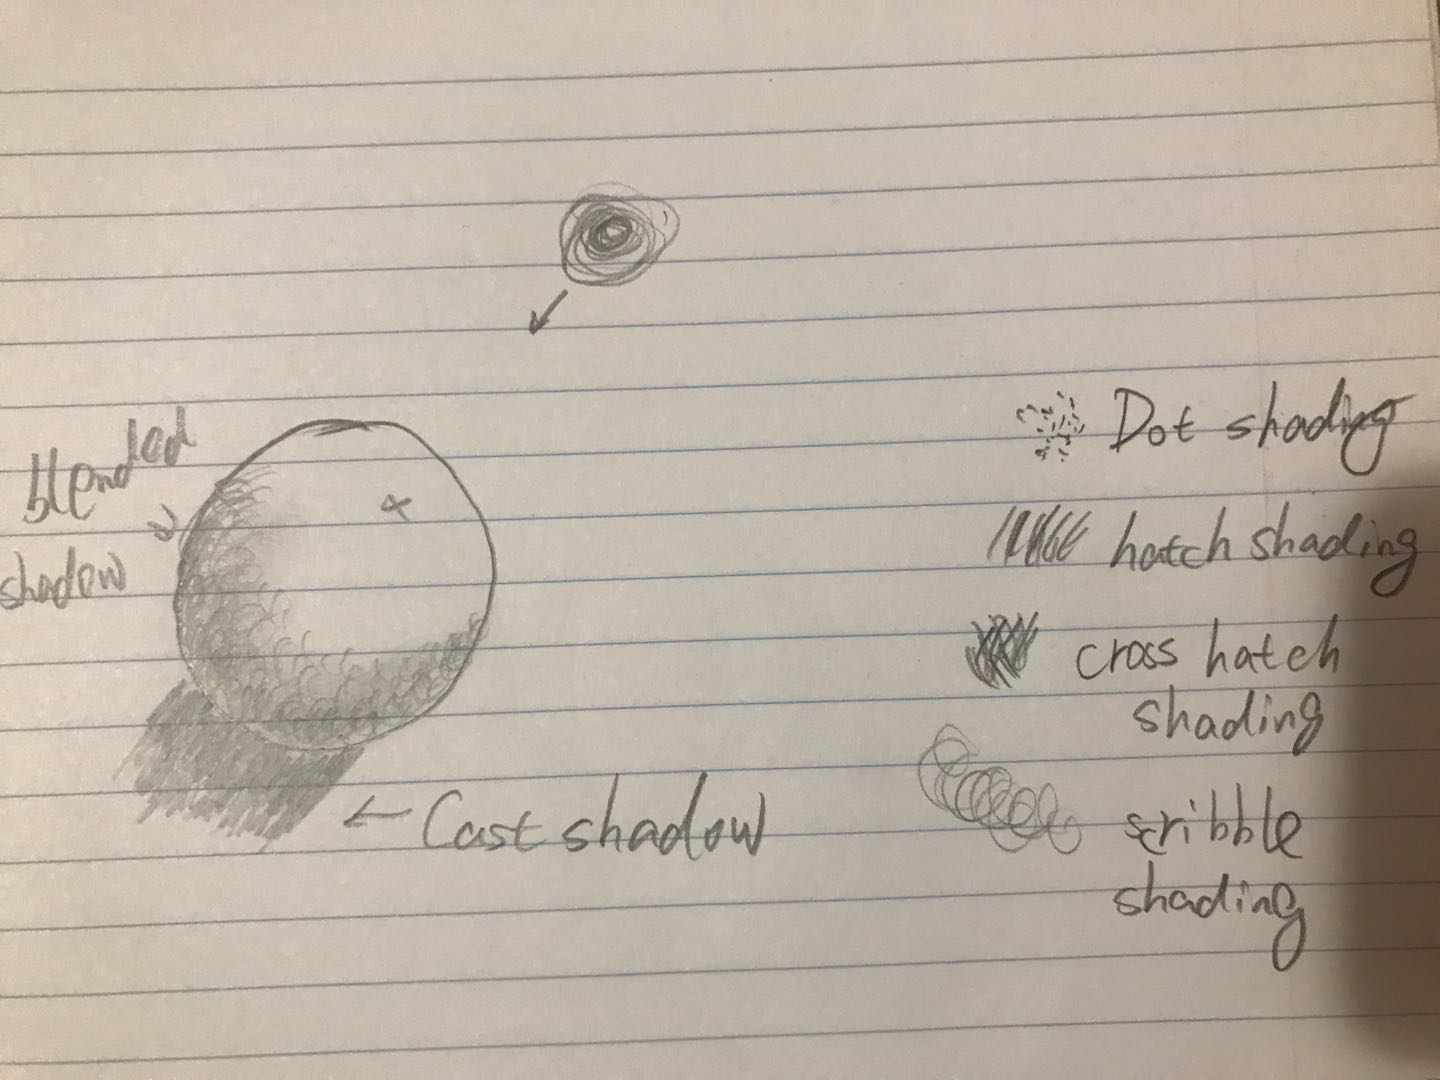 blended
shadow
Cast shadow
Dot shading
hatch shading
cross hatch
shading
scribble
shading